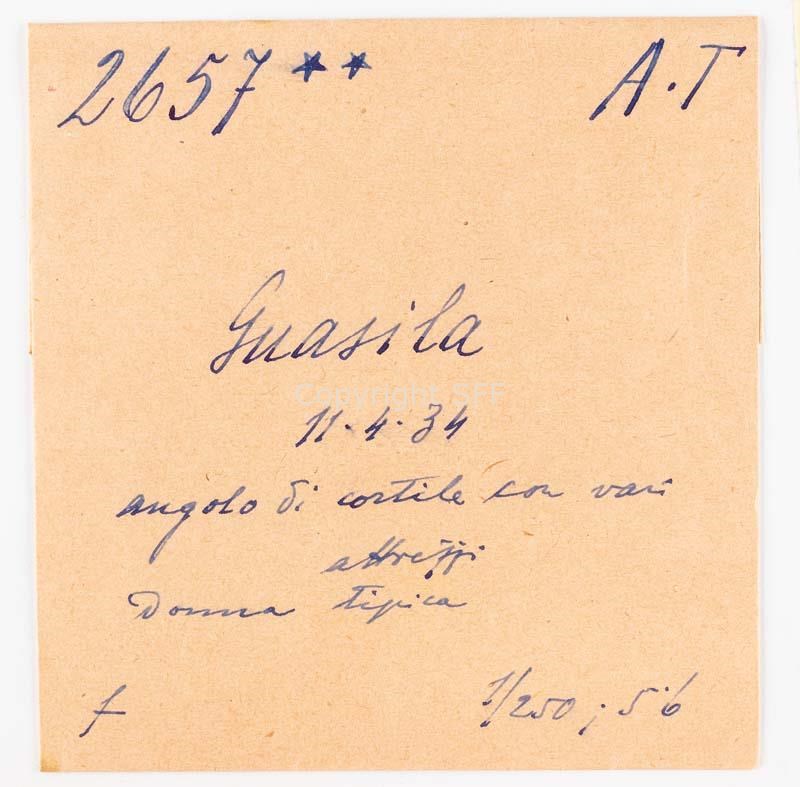 2657 ** A.T
Guasila
Copyright SFF
11.4.34
angolo di cortile con vari
attrezzi
Donna tipica
f 1/250; 5.6